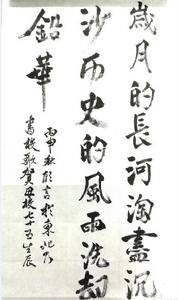 歲月的長河淘盡沉
沙历史的風雨洗劫
鉛華
丙申秋彤言於東北乃
書校歌賀母校七十五生辰